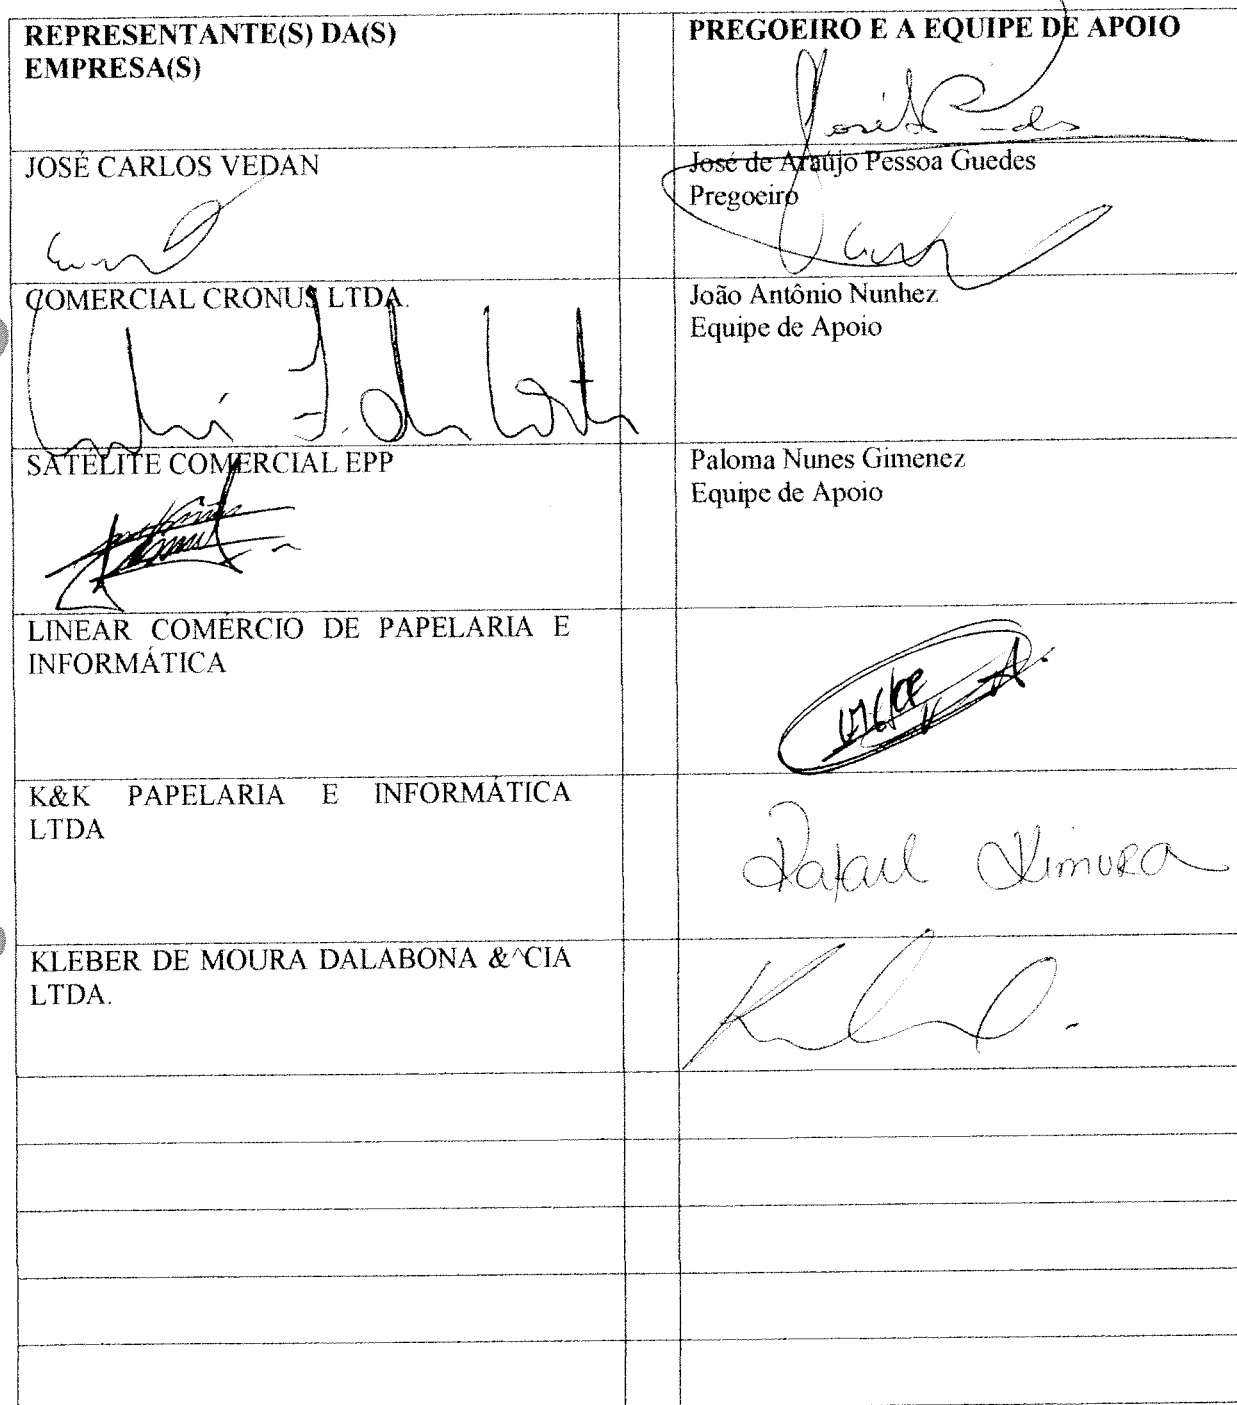 REPRESENTANTE(S) DA(S)
EMPRESA(S)
PREGOEIRO E A EQUIPE DE APOIO
JOSÉ CARLOS VEDAN
José de Araújo Pessoa Guedes
Pregoeiro
COMERCIAL CRONUS LTDA.
João Antônio Nunhez
Equipe de Apoio
SATÉLITE COMERCIAL EPP
Paloma Nunes Gimenez
Equipe de Apoio
LINEAR COMÉRCIO DE PAPELARIA E
INFORMÁTICA
K&K PAPELARIA E INFORMÁTICA
LTDA
Rafael Kimura
KLEBER DE MOURA DALABONA &^CIA
LTDA.